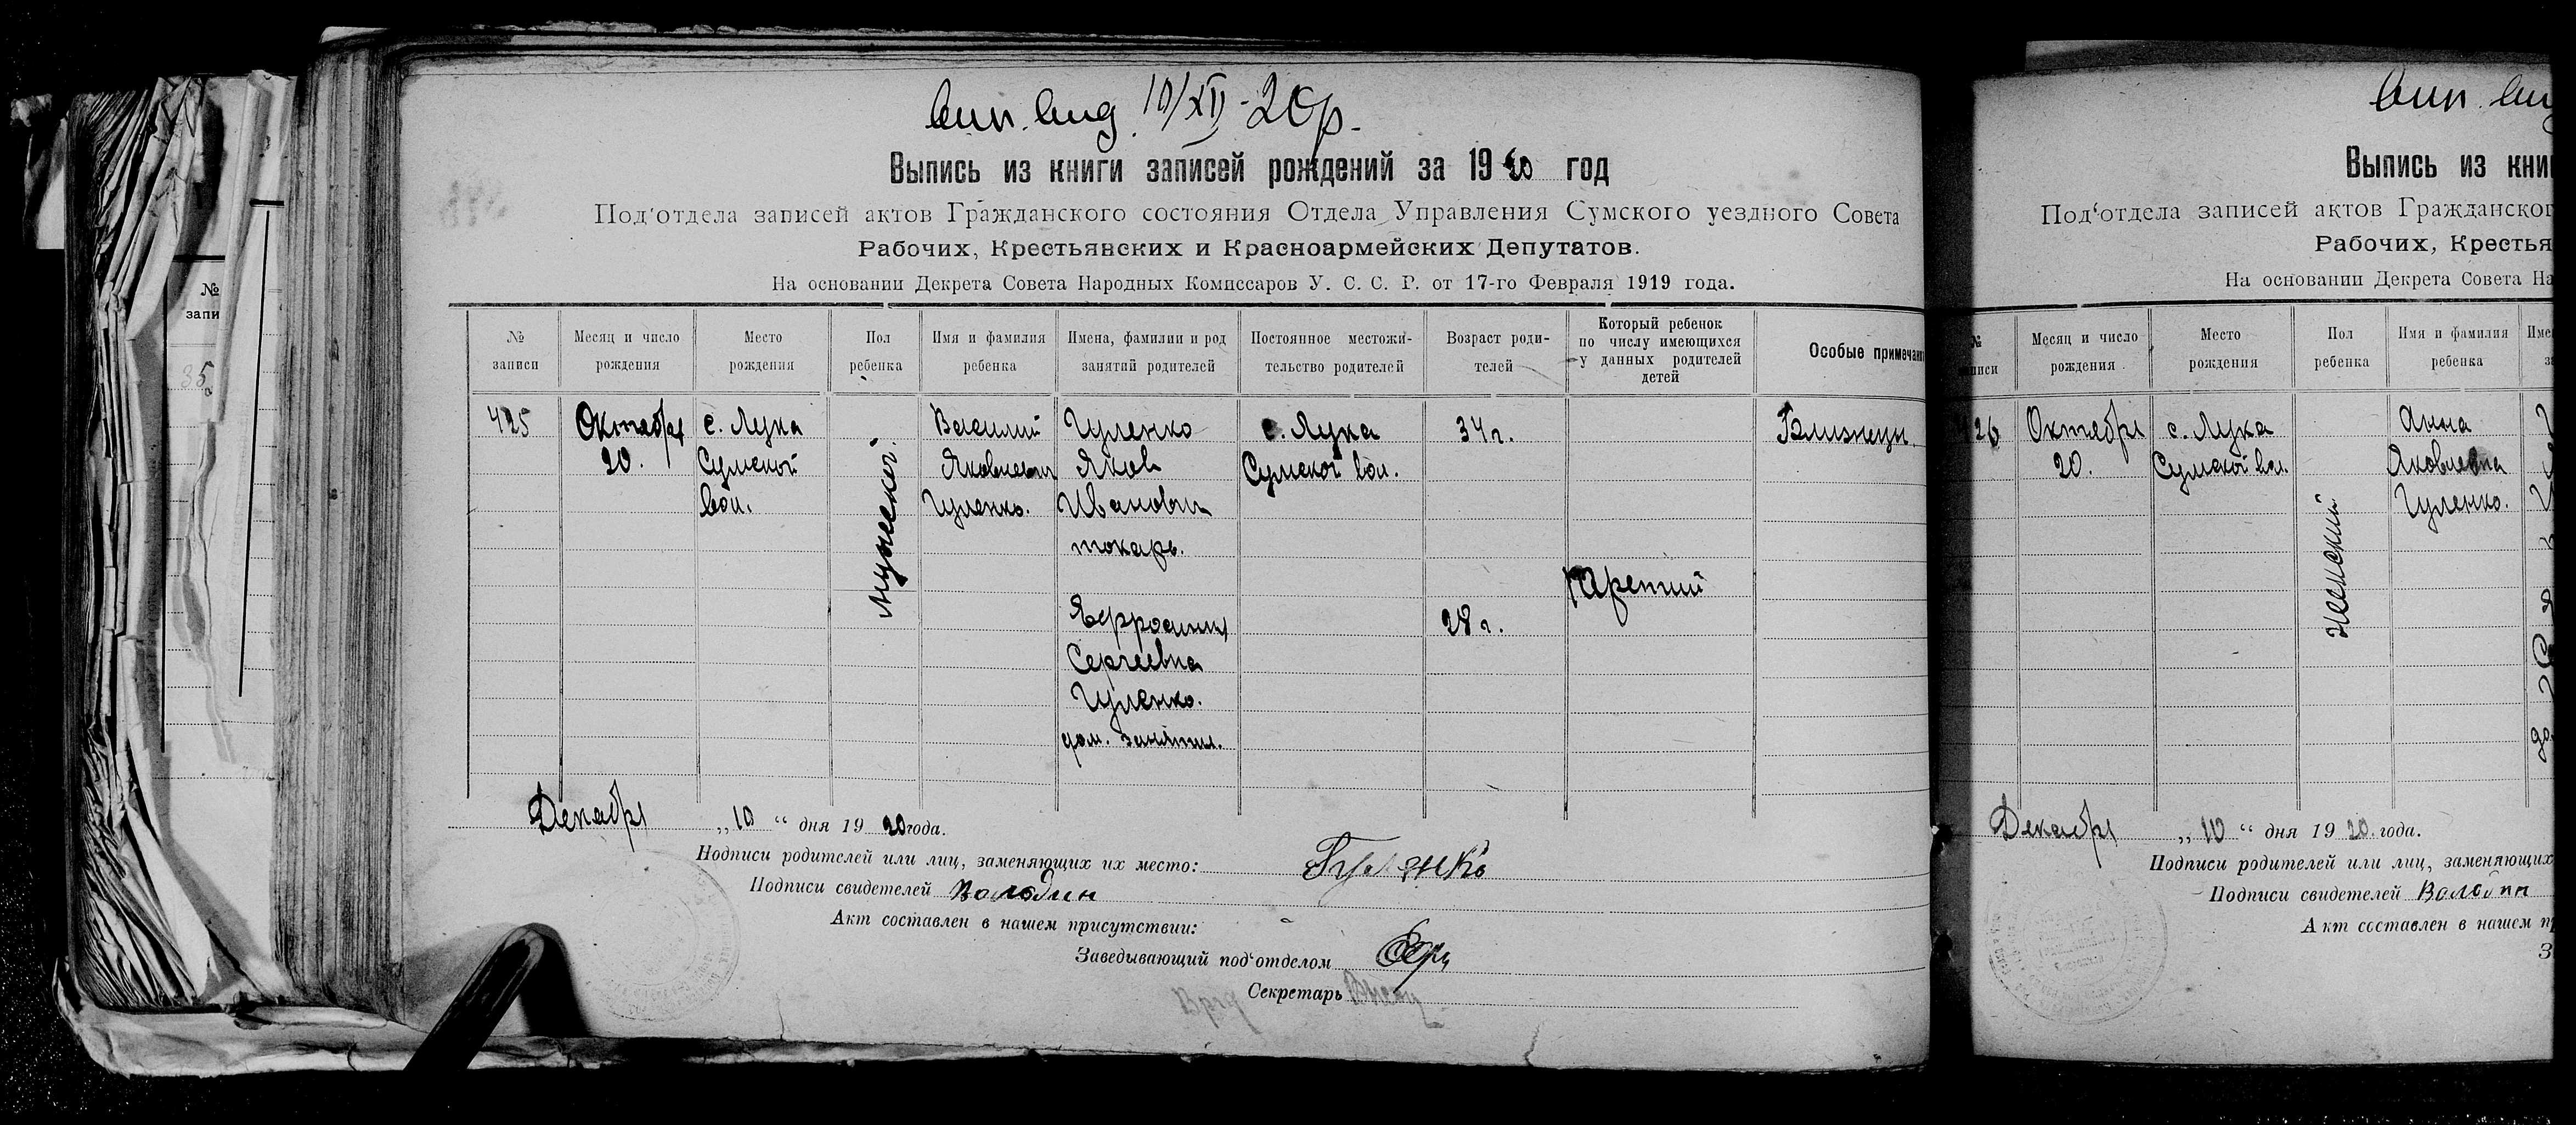 вип. вид. 10/XII-20р.
Выпись из книги записей рождений за 1920 год
Под'отдела записей актов Гражданского состояния Отдела Управления Сумского уездного Совета
Рабочих, Крестьянских и Красноармейских Депутатов.
На основании Декрета Совета Народных Комиссаров У. С. С. Р. от 17-го Февраля 1919 года.
№ записи
Месяц и число рождения
Место рождения
Пол ребенка
Имя и фамилия ребенка
Имена, фамилии и род занятий родителей
Постоянное местожительство родителей
Возраст родителей
Который ребенок по числу имеющихся у данных родителей детей
Особые примечан
425
Октября
20.
с. Лука
Сумской
вол.
мужеской.
Василий
Яковлевич
Гуленко.
Гуленко
Яков
Иванович
токарь.
Евфросиния
Сергеевна
Гуленко.
дом. занятия.
с. Лука
Сумской вол.
34 г.
28 г.
третий
Близнецы.
Декабря „10“ дня 1920 года.
Подписи родителей или лиц, заменяющих их место:
Подписи свидетелей Володин
Акт составлен в нашем присутствии:
Заведывающий под'отделом
Секретарь
№
запи
35
вип. ви
Выпись из кни
Под'отдела записей актов Гражданског
Рабочих, Крестья
На основании Декрета Совета На
№
писи
Месяц и число рождения
Место рождения
Пол ребенка
Имя и фамилия ребенка
Име
26
Октября
20.
с. Лука
Сумской вол.
женский
Анна
Яковлевна
Гуленко.
до
Декабря „10“ дня 1920 года.
Подписи родителей или лиц, заменяющих
Подписи свидетелей Володин
Акт составлен в нашем п
З